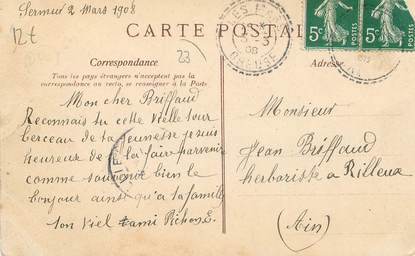 Sermur 2 Mars 1908
12t
CARTE POSTALE
23
Correspondance
Tous les pays étrangers n'acceptent pas la
correspondance au recto, se renseigner à la Poste
Mon cher Briffaud
Reconnais tu cette Vielle tour
berceau de ta jeunesse je suis
heureux de la faire parvenir
comme souvenir bien le
bonjour ainsi qu'a ta famille
ton viel ami Pichon E.
Adresse
Monsieur
Jean Briffaud
herboriste a Rilleux
(Ain)
5c
5c
CREUSE
08